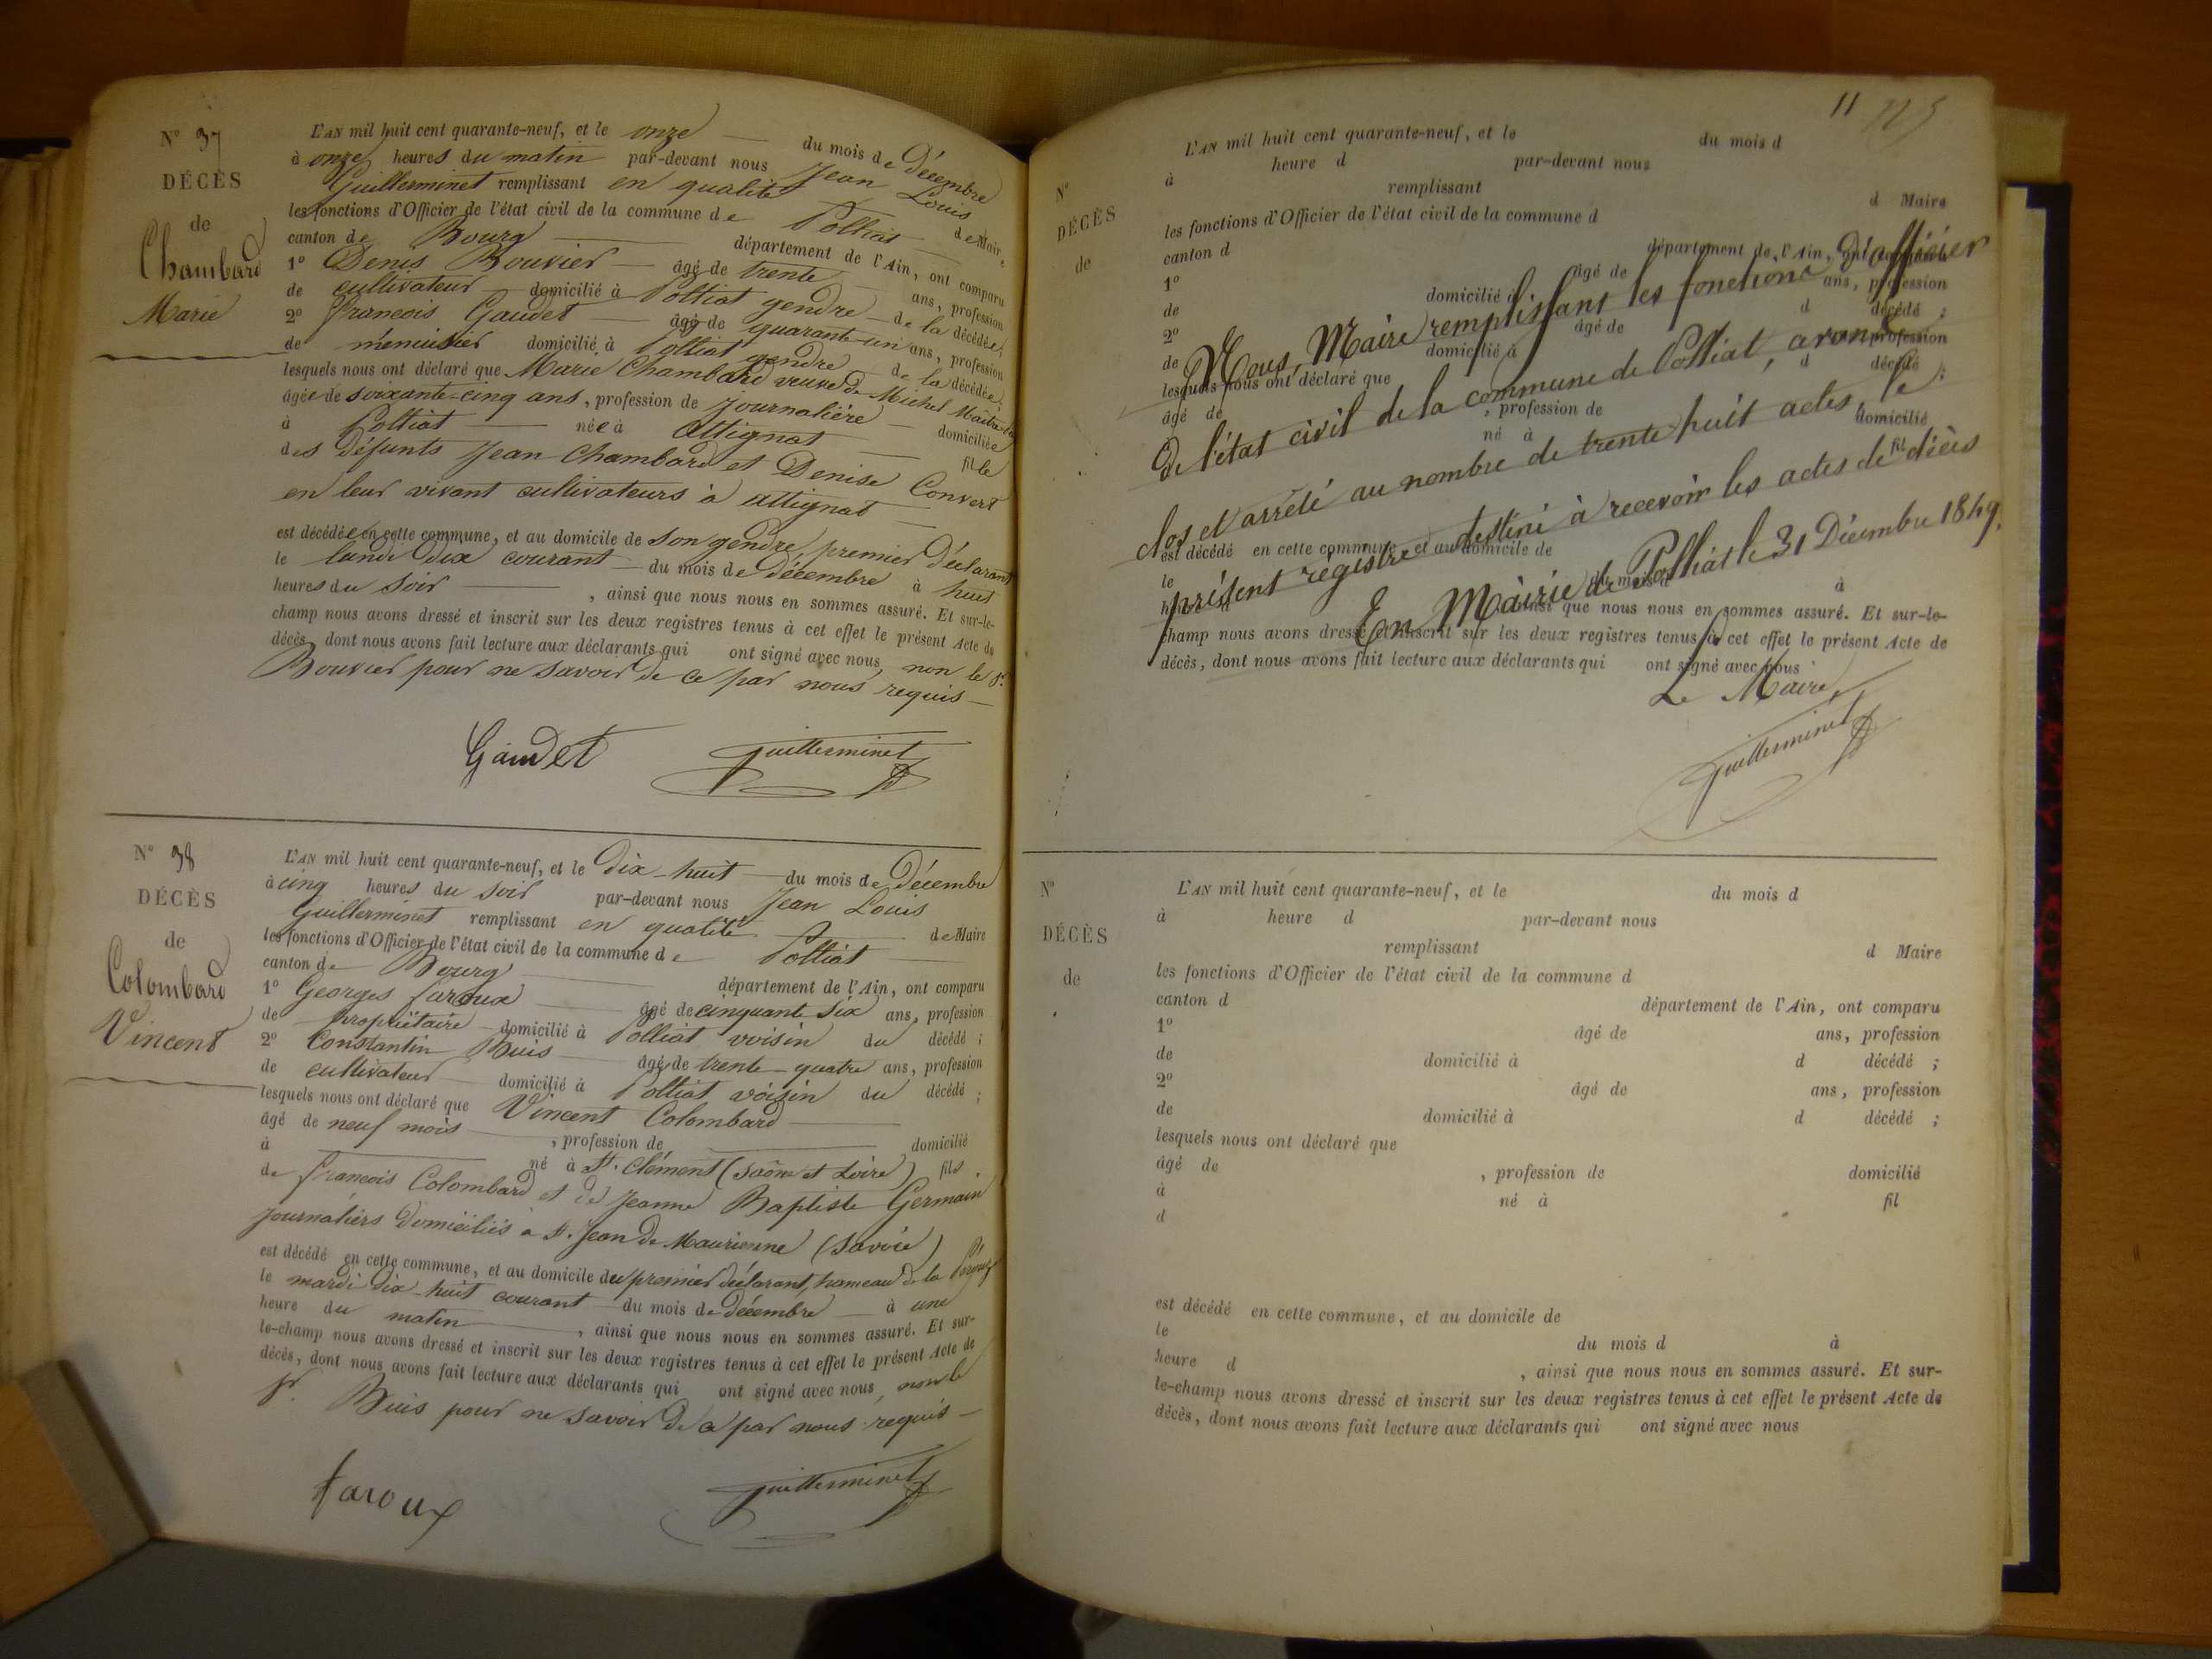 N° 37
DÉCÈS
de
Chambard
Marie
L'AN mil huit cent quarante-neuf, et le onze du mois de Décembre
à onze heures du matin par-devant nous Jean Louis
Guillerminet remplissant en qualité de Maire
les fonctions d'Officier de l'état civil de la commune de Polliat
canton de Bourg département de l'Ain, ont comparu
1° Denis Bouvier âgé de trente ans, profession
de cultivateur domicilié à Polliat gendre de la décédée;
2° francois Gaudet âgé de quarante-un ans, profession
de menuisier domicilié à Polliat gendre de la décédée;
lesquels nous ont déclaré que Marie Chambard veuve de Michel
âgée de soixante-cinq ans, profession de Journalière domiciliée
à Polliat née à Attignat fille
des défunts Jean Chambard et Denise Convert
en leur vivant cultivateurs à attignat
est décédée en cette commune, et au domicile de son gendre, premier Déclarant
le lundi dix courant du mois de décembre à huit
heures du soir, ainsi que nous nous en sommes assuré. Et sur-le-
champ nous avons dressé et inscrit sur les deux registres tenus à cet effet le présent Acte de
décès, dont nous avons fait lecture aux déclarants qui ont signé avec nous, non le Sr.
Bouvier pour ne savoir de ce par nous requis
Gaudet Guillerminet
N° 38
DÉCÈS
de
Colombard
Vincent
L'AN mil huit cent quarante-neuf, et le Dix-huit du mois de Décembre
à cinq heures du soir par-devant nous Jean Louis
Guillerminet remplissant en qualité de Maire
les fonctions d'Officier de l'état civil de la commune de Polliat
canton de Bourg département de l'Ain, ont comparu
1° Georges faroux âgé de cinquante six ans, profession
de propriétaire domicilié à Polliat voisin du décédé;
2° Constantin Buis âgé de trente-quatre ans, profession
de cultivateur domicilié à Polliat voisin du décédé;
lesquels nous ont déclaré que Vincent Colombard
âgé de neuf mois, profession de domicilié
à né à St. Clément (Saône et Loire) fils
de francois Colombard et de Jeanne Baptiste Germain
journaliers domiciliés à St. Jean de Maurienne (Savoie)
est décédé en cette commune, et au domicile du premier déclarant, hameau de la
le mardi dix-huit courant du mois de décembre à une
heure du matin, ainsi que nous nous en sommes assuré. Et sur-
le-champ nous avons dressé et inscrit sur les deux registres tenus à cet effet le présent Acte de
décès, dont nous avons fait lecture aux déclarants qui ont signé avec nous, non le
Sr. Buis pour ne savoir de ce par nous requis
faroux Guillerminet
11 
N°
DÉCÈS
de
L'AN mil huit cent quarante-neuf, et le du mois d
à heure d par-devant nous
remplissant d Maire
les fonctions d'Officier de l'état civil de la commune d
canton d département de l'Ain, ont comparu
1° âgé de ans, profession
de domicilié à d décédé;
2° âgé de profession
de domicilié à d décédé;
lesquels nous ont déclaré que
âgé de, profession de domicilié
né à fil
est décédé en cette commune, et au domicile de
le du mois d à
ainsi que nous nous en sommes assuré. Et sur-le-
champ nous avons dressé et inscrit sur les deux registres tenus à cet effet le présent Acte de
décès, dont nous avons fait lecture aux déclarants qui ont signé avec nous
Nous, Maire remplissant les fonctions d'officier
de l'état civil de la commune de Polliat, avons
clos et arrêté au nombre de trente huit actes, le
présent régistre destiné à recevoir les actes de décès
En Mairie de Polliat le 31 Décembre 1849.
Le Maire,
Guillerminet
N°
DÉCÈS
de
L'AN mil huit cent quarante-neuf, et le du mois d
à heure d par-devant nous
remplissant d Maire
les fonctions d'Officier de l'état civil de la commune d
canton d département de l'Ain, ont comparu
1° âgé de ans, profession
de domicilié à d décédé;
2° âgé de ans, profession
de domicilié à d décédé;
lesquels nous ont déclaré que
âgé de, profession de domicilié
à né à fil
d
est décédé en cette commune, et au domicile de
le du mois d à
heure d, ainsi que nous nous en sommes assuré. Et sur-
le-champ nous avons dressé et inscrit sur les deux registres tenus à cet effet le présent Acte de
décès, dont nous avons fait lecture aux déclarants qui ont signé avec nous